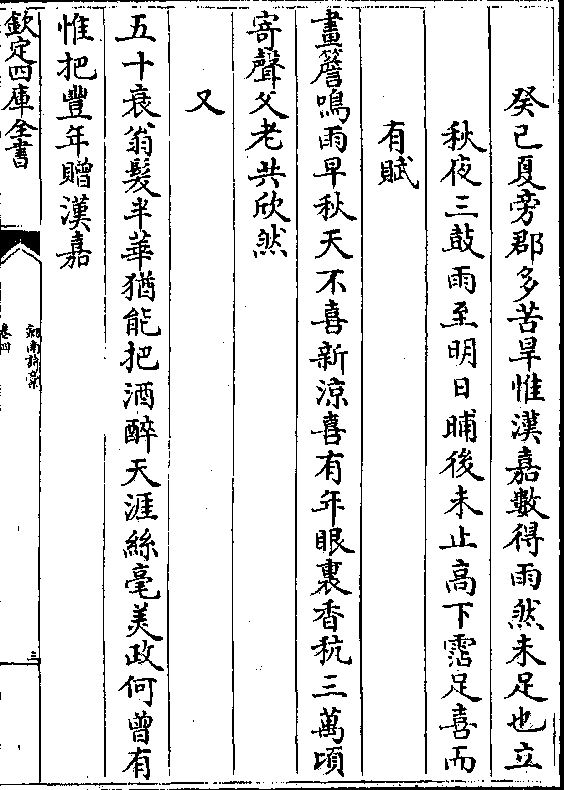 癸已夏旁郡多苦旱惟漢嘉數得雨然未足也立
秋夜三鼓雨至明日晡後未止高下霑足喜而
有賦
畫簷鳴雨早秋天不喜新涼喜有年眼裏香秔三萬頃
寄聲父老共欣然
又
五十衰翁髮半華猶能把酒醉天涯絲毫美政何曾有
惟把豐年贈漢嘉
欽定四庫全書
劍南詩稾
卷四
三